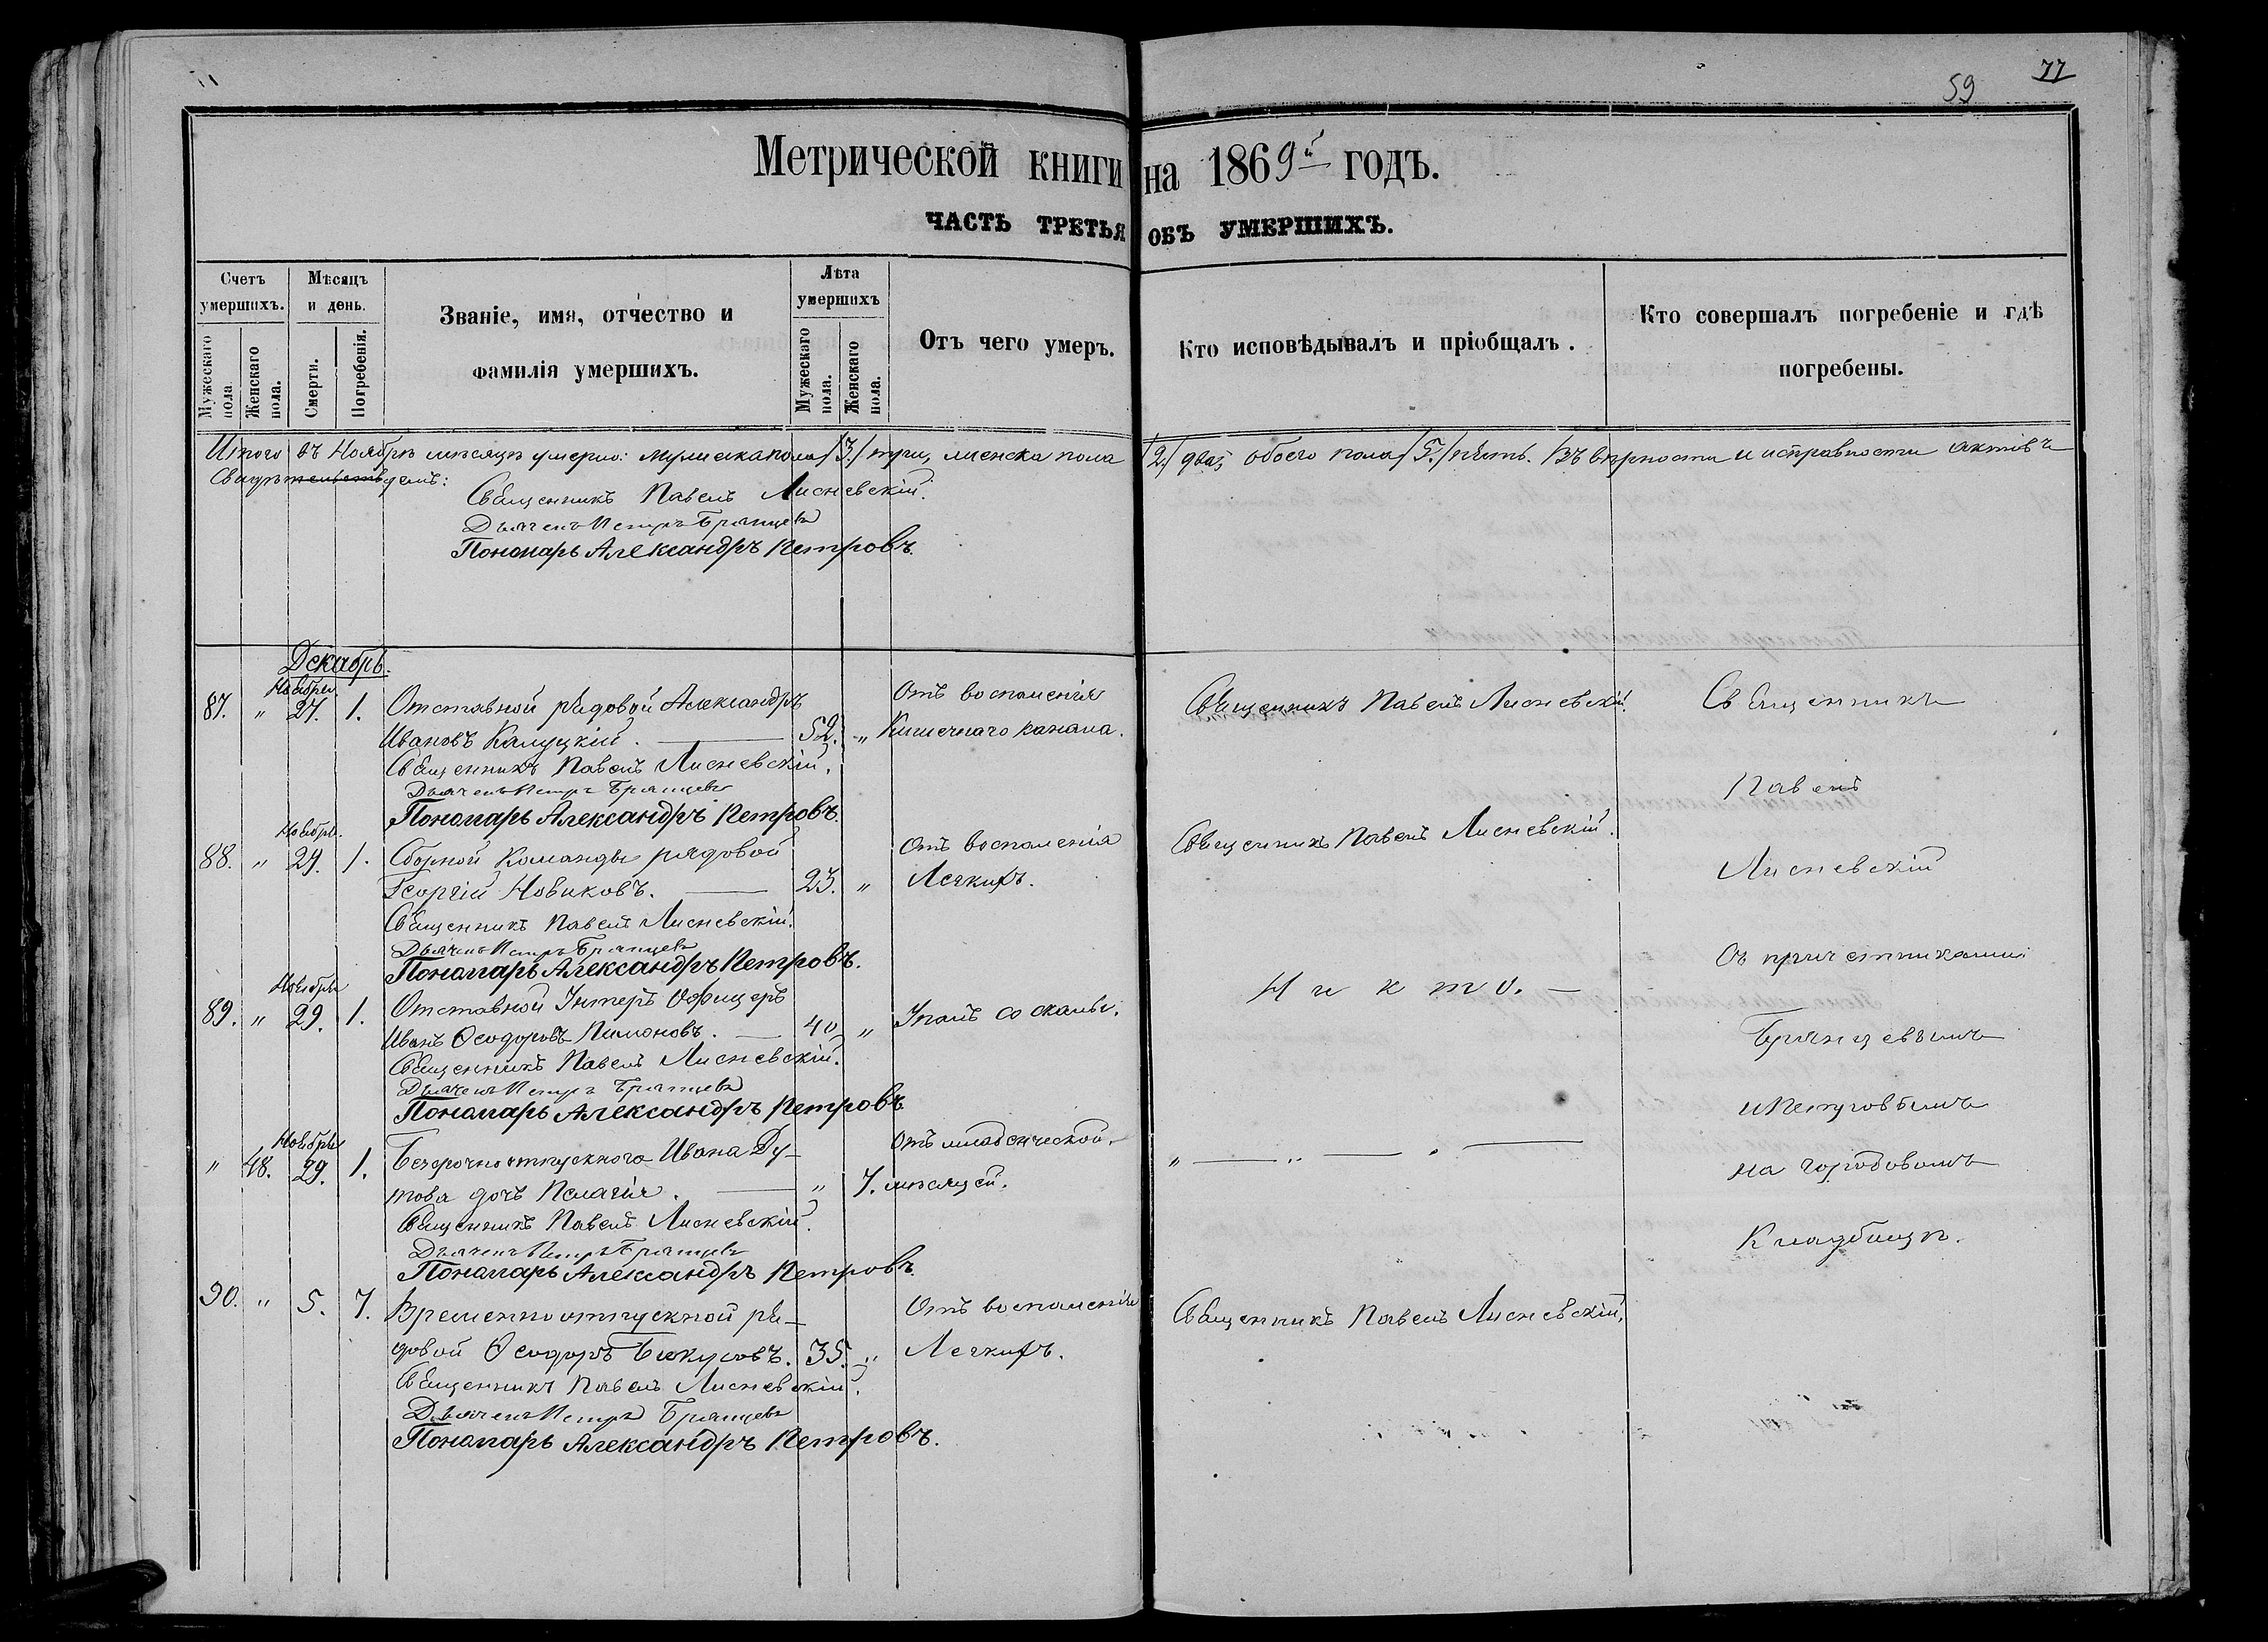 59
77
Метрической книги на 1869й годъ.
ЧАСТЬ ТРЕТЬЯ ОБЪ УМЕРШИХЪ.
Счетъ умершихъ.
Мужескаго пола
Женскаго пола.
Мѣсяцъ и день.
Смерти.
Погребенія.
Званіе, имя, отчество и
фамилія умершихъ.
Лѣта умершихъ
Мужескаго пола.
Женскаго пола.
Отъ чего умеръ.
Кто исповѣдывалъ и пріобщалъ.
Кто совершалъ погребеніе и гдѣ
погребены.
Итого въ Ноябрѣ мѣсяцѣ умерло: мужеска пола /3./ три, женска пола /2./ два, обоего пола /5./ пять. Въ вѣрности и исправности актовъ
Священникъ Павелъ Лисневскій.
Дьячекъ Петръ Брянцевъ
Пономарь Александръ Петровъ.
Декабрь.
Ноября
87. " 27. 1. Отставной рядовой Александръ Отъ воспаленія Священникъ Павелъ Лисневскій. Священникъ
Ивановъ Калуцкій. 52. " Кишечнаго канала.
Священникъ Павелъ Лисневскій.
Дьячекъ Петръ Брянцевъ
Павелъ
Пономарь Александръ Петровъ.
Ноябрь.
88. " 29. 1. Сборной Команды рядовой Отъ воспаленія Священникъ Павелъ Лисневскій.
Георгій Новиковъ. 23. " Легкихъ.
Лисневскій
Священникъ Павелъ Лисневскій.
Дьячекъ Петръ Брянцевъ
Пономарь Александръ Петровъ.
съ причетниками
Ноября
89. " 29. 1. Отставной Унтеръ Офицеръ Упалъ со скалы. Никто.
Иванъ Ѳеодоровъ Пимоновъ. 40 "
Брянцевымъ
Священникъ Павелъ Лисневскій.
Дьячекъ Петръ Брянцевъ
Пономарь Александръ Петровъ
и Петровымъ
Ноября
" 48. 29. 1. Безсрочноотпускнаго Ивана Ду- Отъ младенческой. " " "
на городовомъ
това дочь Пелагія. " 7. мѣсяцей.
Священникъ Павелъ Лисневскій.
Кладбищѣ.
Дьячекъ Петръ Брянцевъ
Пономарь Александръ Петровъ.
90. " 5. 7. Временноотпускной ря- Отъ воспаленія Священникъ Павелъ Лисневскій.
довой Ѳеодоръ 35. " Легкихъ.
Священникъ Павелъ Лисневскій.
Дьячекъ Петръ Брянцевъ
Пономарь Александръ Петровъ.